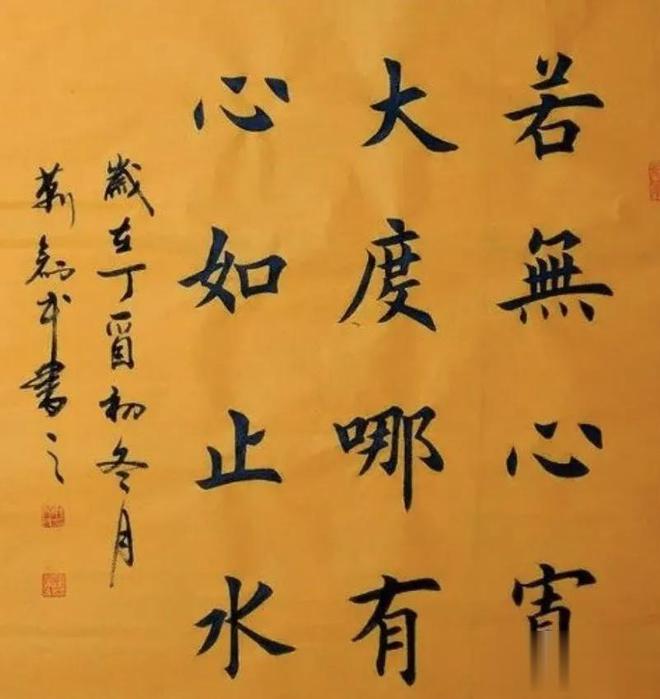 若無心
大度哪有
心如止水
歲在丁酉初冬月
書之